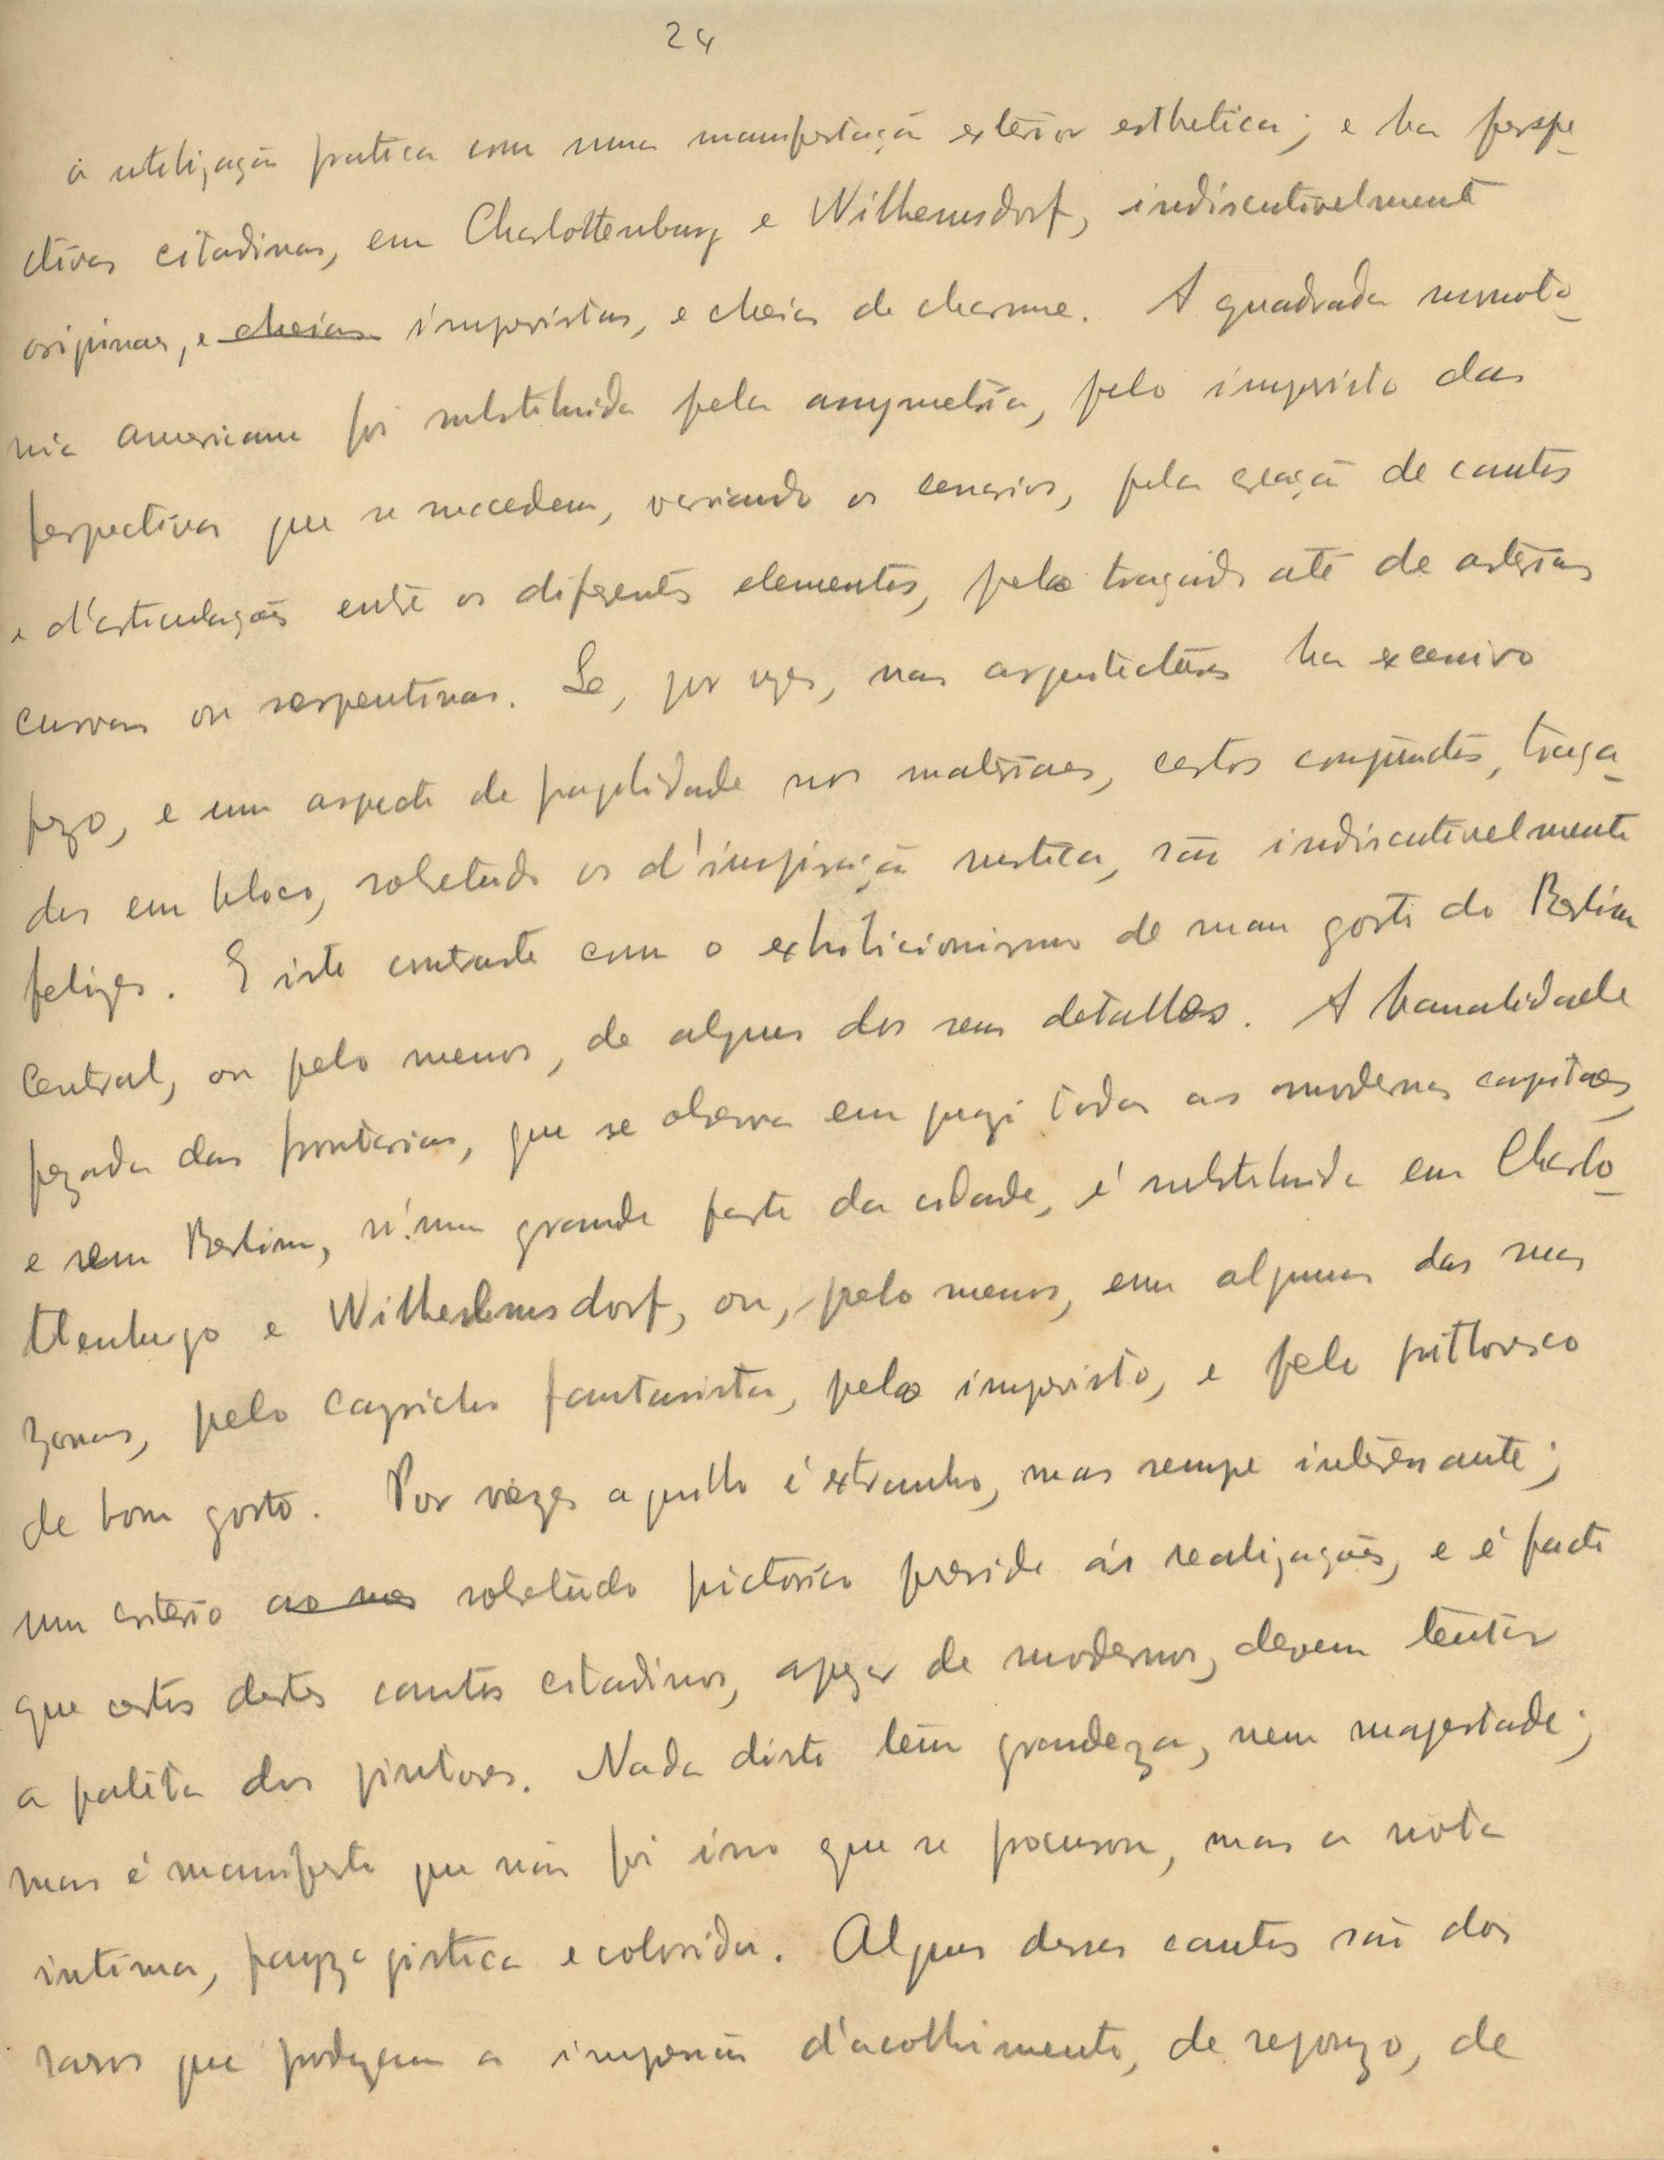 24
a utilização pratica com uma manifestação exterior esthetica; e ha perspe-
ctivas citadinas, em Charlottenburg e Wilhemsdorf, indiscutivelmente
originaes, e cheias imprevistas, e cheias de charme. A quadrada monoto-
nia americana foi substituida pela asymetria, pelo imprevisto das
perspectivas que se succedem, variando os cenarios, pela creação de cantos
e d'articulações entre os diferentes elementos, pelo traçado até de arterias
curvas ou serpentinas. Se, por vezes, nas arquitecturas ha excessivo
pezo, e um aspecto de fragilidade nos materiaes, certos conjuntos, traça-
dos em bloco, sobretudo os d'inspiração rustica, são indiscutivelmente
felizes. E isto contraste com o exhibicionismo de mau gosto do Berlim
Central, ou pelo menos, de alguns dos seus detalhes. A banalidade
pezada das frontarias, que se observa em quazi todas as modernas capitaes,
e em Berlim, n'uma grande parte da cidade, é substituida em Charlo-
ttenburgo e Wilhelmsdorf, ou, pelo menos, em algumas das suas
zonas, pelo capricho fantasista, pelo imprevisto, e pelo pittoresco
de bom gosto. Por vezes aquillo é extranho, mas sempre interessante;
um criterio sobretudo pictorico preside ás realizações, e é facto
que certos destes cantos citadinos, apezar de modernos, devem tentar
a paleta dos pintores. Nada disto tem grandeza, nem majestade;
mas é manifesto que não foi isso que se procurou, mas a nota
intima, payzagistica e colorida. Alguns desses cantos são dos
raros que produzem a impressão d'acolhimento, de repouzo, de